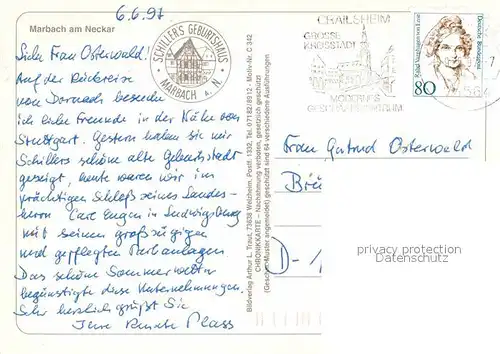 6.6.97
Marbach am Neckar
Liebe Frau Osterwald!
Auf der Rückreise
von Dornach besuche
ich liebe Freunde in der Nähe von
Stuttgart. Gestern haben sie mir
Schillers schöne alte Geburtsstadt
gezeigt, heute waren wir im
prächtigen Schloß seines Landes-
herrn Carl Eugen in Ludwigsburg
mit seinen großzügigen
und gepflegten Parkanlagen.
Das schöne Sommerwetter
begünstigte diese Unternehmungen.
Sehr herzlich grüßt Sie
Ihre Renate Plass
SCHILLER'S GEBURTSHAUS
MARBACH a. N.
Bildverlag Arthur L. Traut, 73638 Welzheim, Postf. 1332, Tel. 07182/8912 - Motiv-Nr. C 342
CHRONIKKARTE - Nachahmung verboten, gesetzlich geschützt
(Geschm.-Muster angemeldet) geschützt sind 64 verschiedene Ausführungen
CRAILSHEIM
GROSSE
KREISSTADT
MODERNES
80
Deutsche Bundespost
Frau Gutrud Osterwald
D-
privacy protection
Datenschutz